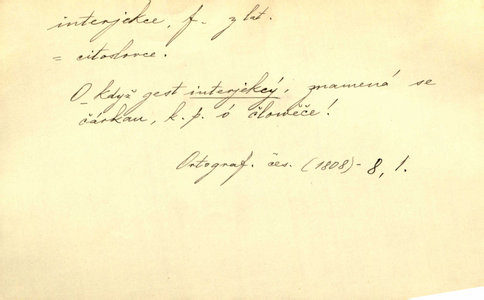 interjekce, f. z lat.
= citoslovce.
O když gest interjekcý, znamená se
čárkau, k. p. ó člowěče!
Ortograf. čes. (1808) - 8, 1.